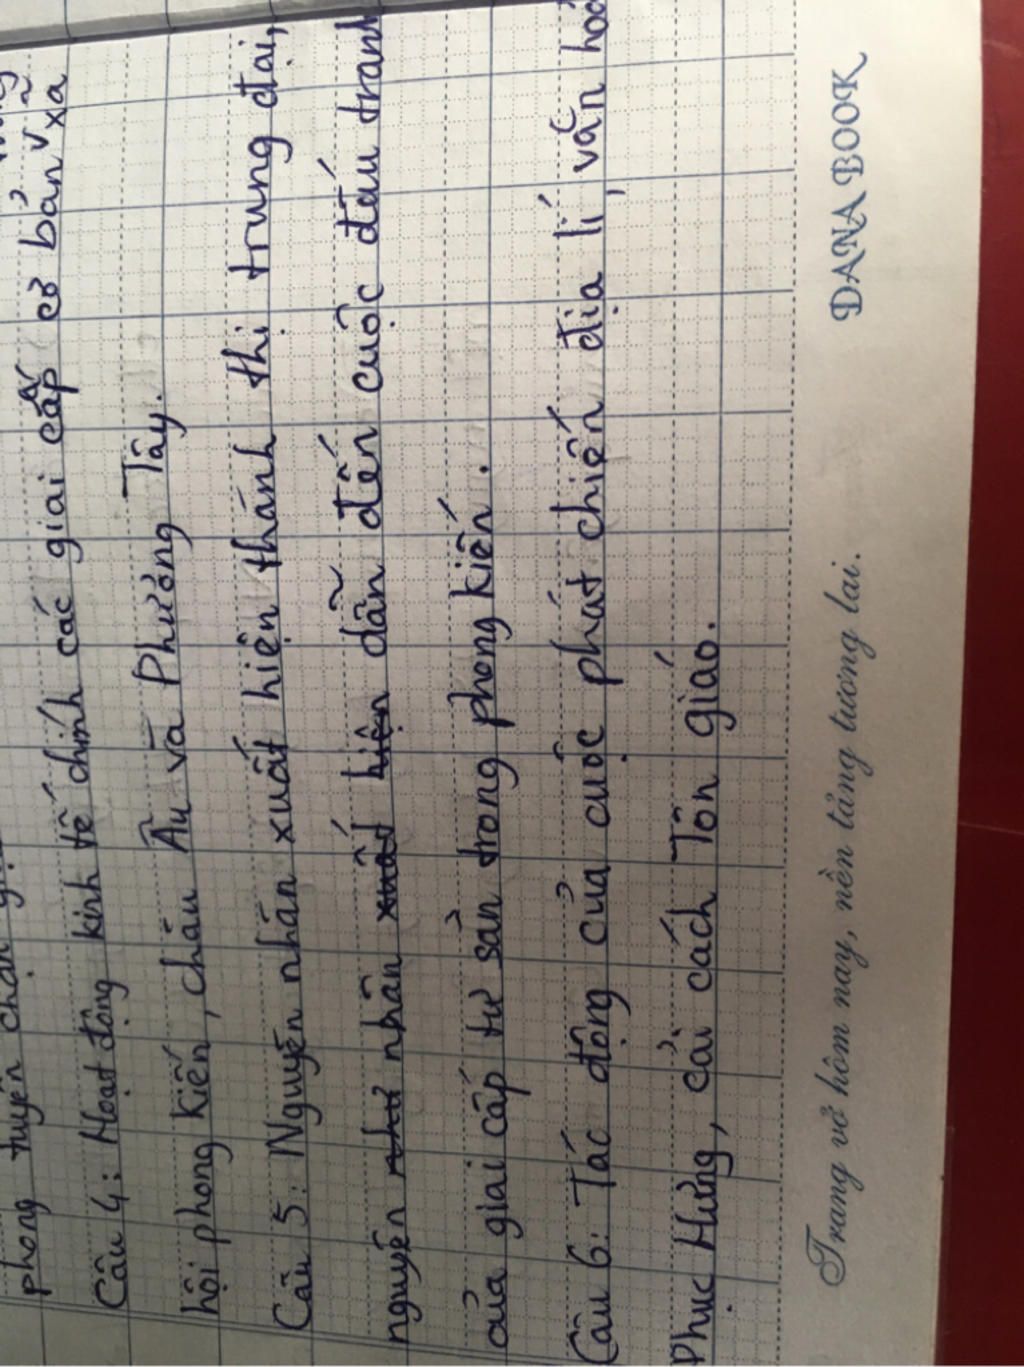 phong tuyến chận
Câu 4: Hoạt động kinh tế chính các giai cấp cơ bản v xã
hội phong kiến, châu Âu và Phương Tây.
Câu 5: Nguyên nhân xuất hiện thành thị trung đại,
nguyên như nhân xuất hiện dẫn đến cuộc đấu tranh
của giai cấp tư sản trong phong kiến.
Câu 6: Tác động của cuộc phát chiến địa lí, văn hoá
Phục Hưng, cải cách Tôn giáo.
Trang vở hôm nay, nền tảng tương lai.
DANA BOOK